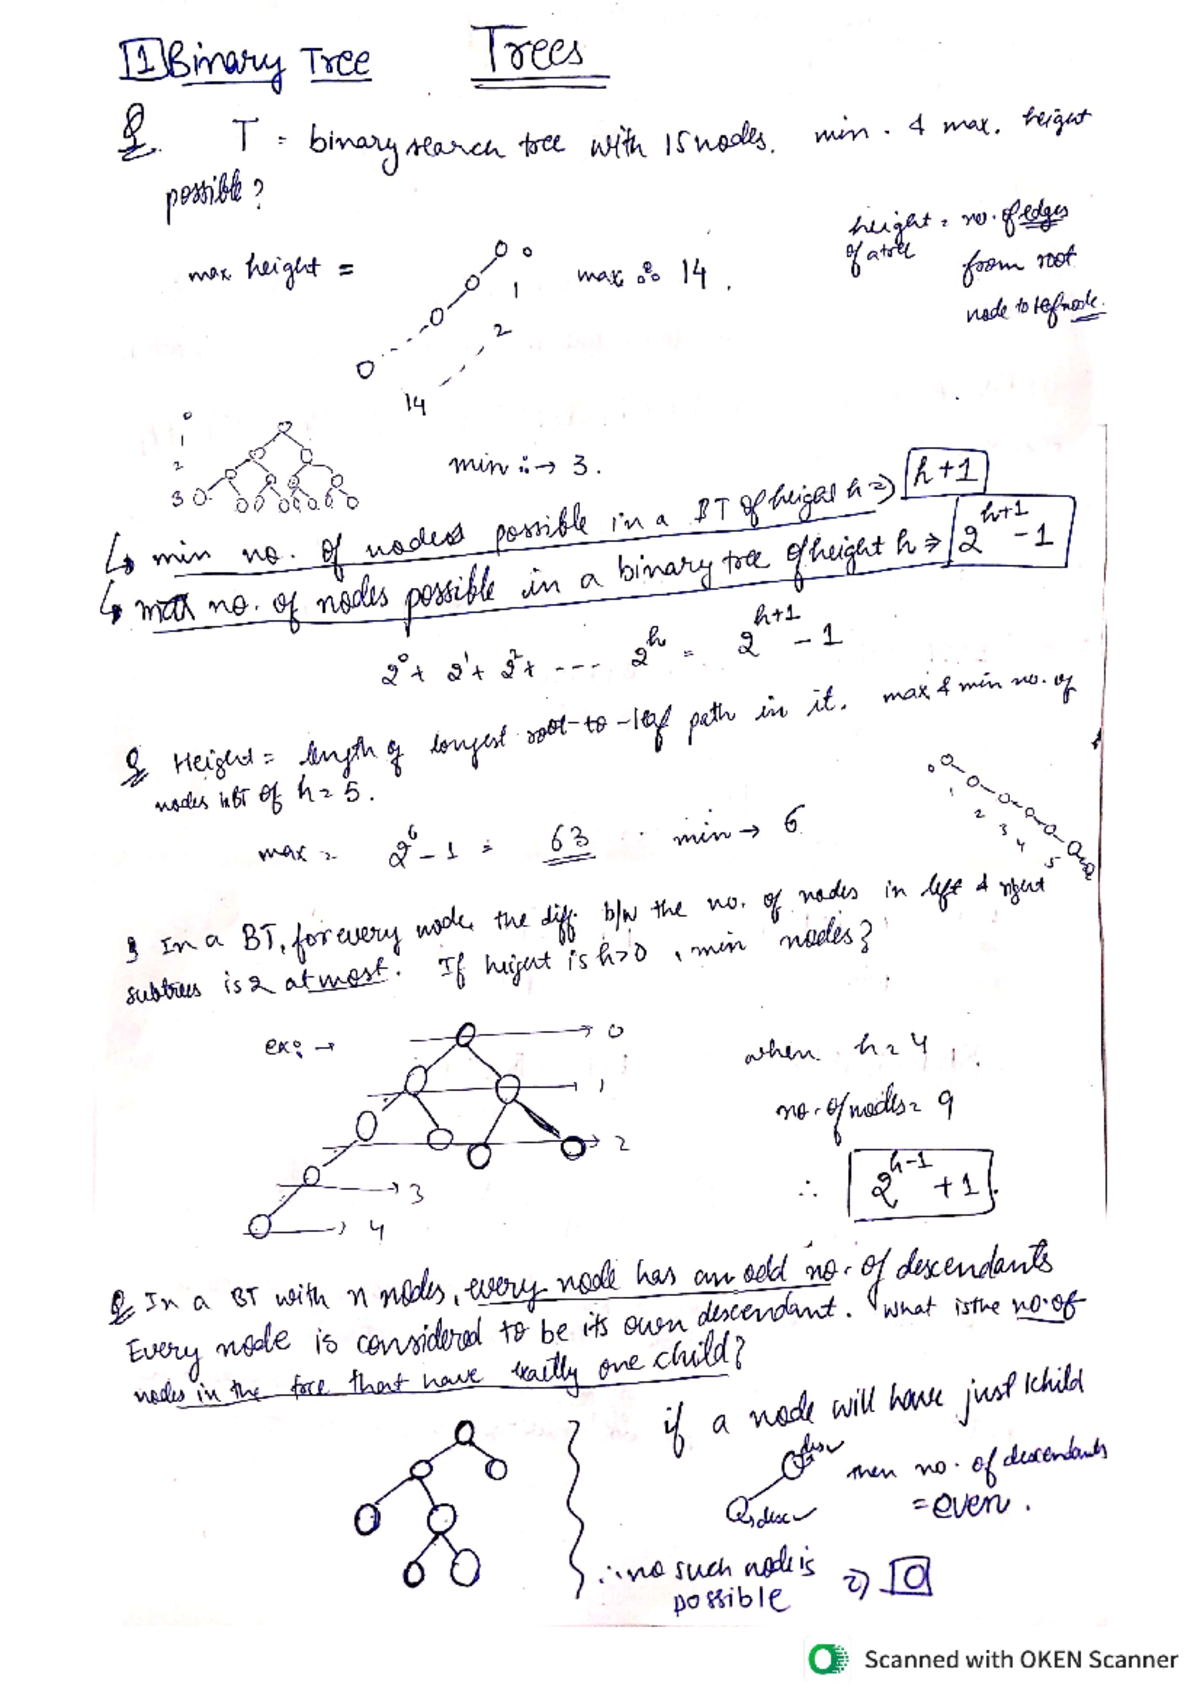 [1] Binary Tree    Trees
Q. T = binary search tree with 15 nodes. min. & max. height
possible?
max height =
0
1
2
14
max ∴ 14.
height = no. of edges
of a tree from root
node to leaf node.
0
1
2
3
min ∴→ 3.
↳ min no. of nodes possible in a BT of height h ⇒ h+1
↳ max no. of nodes possible in a binary tree of height h ⇒ 2^(h+1) - 1
2^0 + 2^1 + 2^2 + ---- 2^h = 2^(h+1) - 1
Q Height = length of longest root-to-leaf path in it. max & min no. of
nodes in BT of h = 5.
0
1
2
3
4
5
max = 2^6 - 1 = 63    min → 6
Q In a BT, for every node, the diff. b/w the no. of nodes in left & right
subtrees is 2 at most. If height is h>0, min nodes?
ex: →
0
1
2
3
4
when h = 4,
no. of nodes = 9
∴ 2^(h-1) + 1.
Q In a BT with n nodes, every node has an odd no. of descendants
Every node is considered to be its own descendant. What is the no. of
nodes in the tree that have exactly one child?
if a node will have just 1 child
then no. of descendants
= even.
∴ no such node is
possible ⇒ 0
Scanned with OKEN Scanner